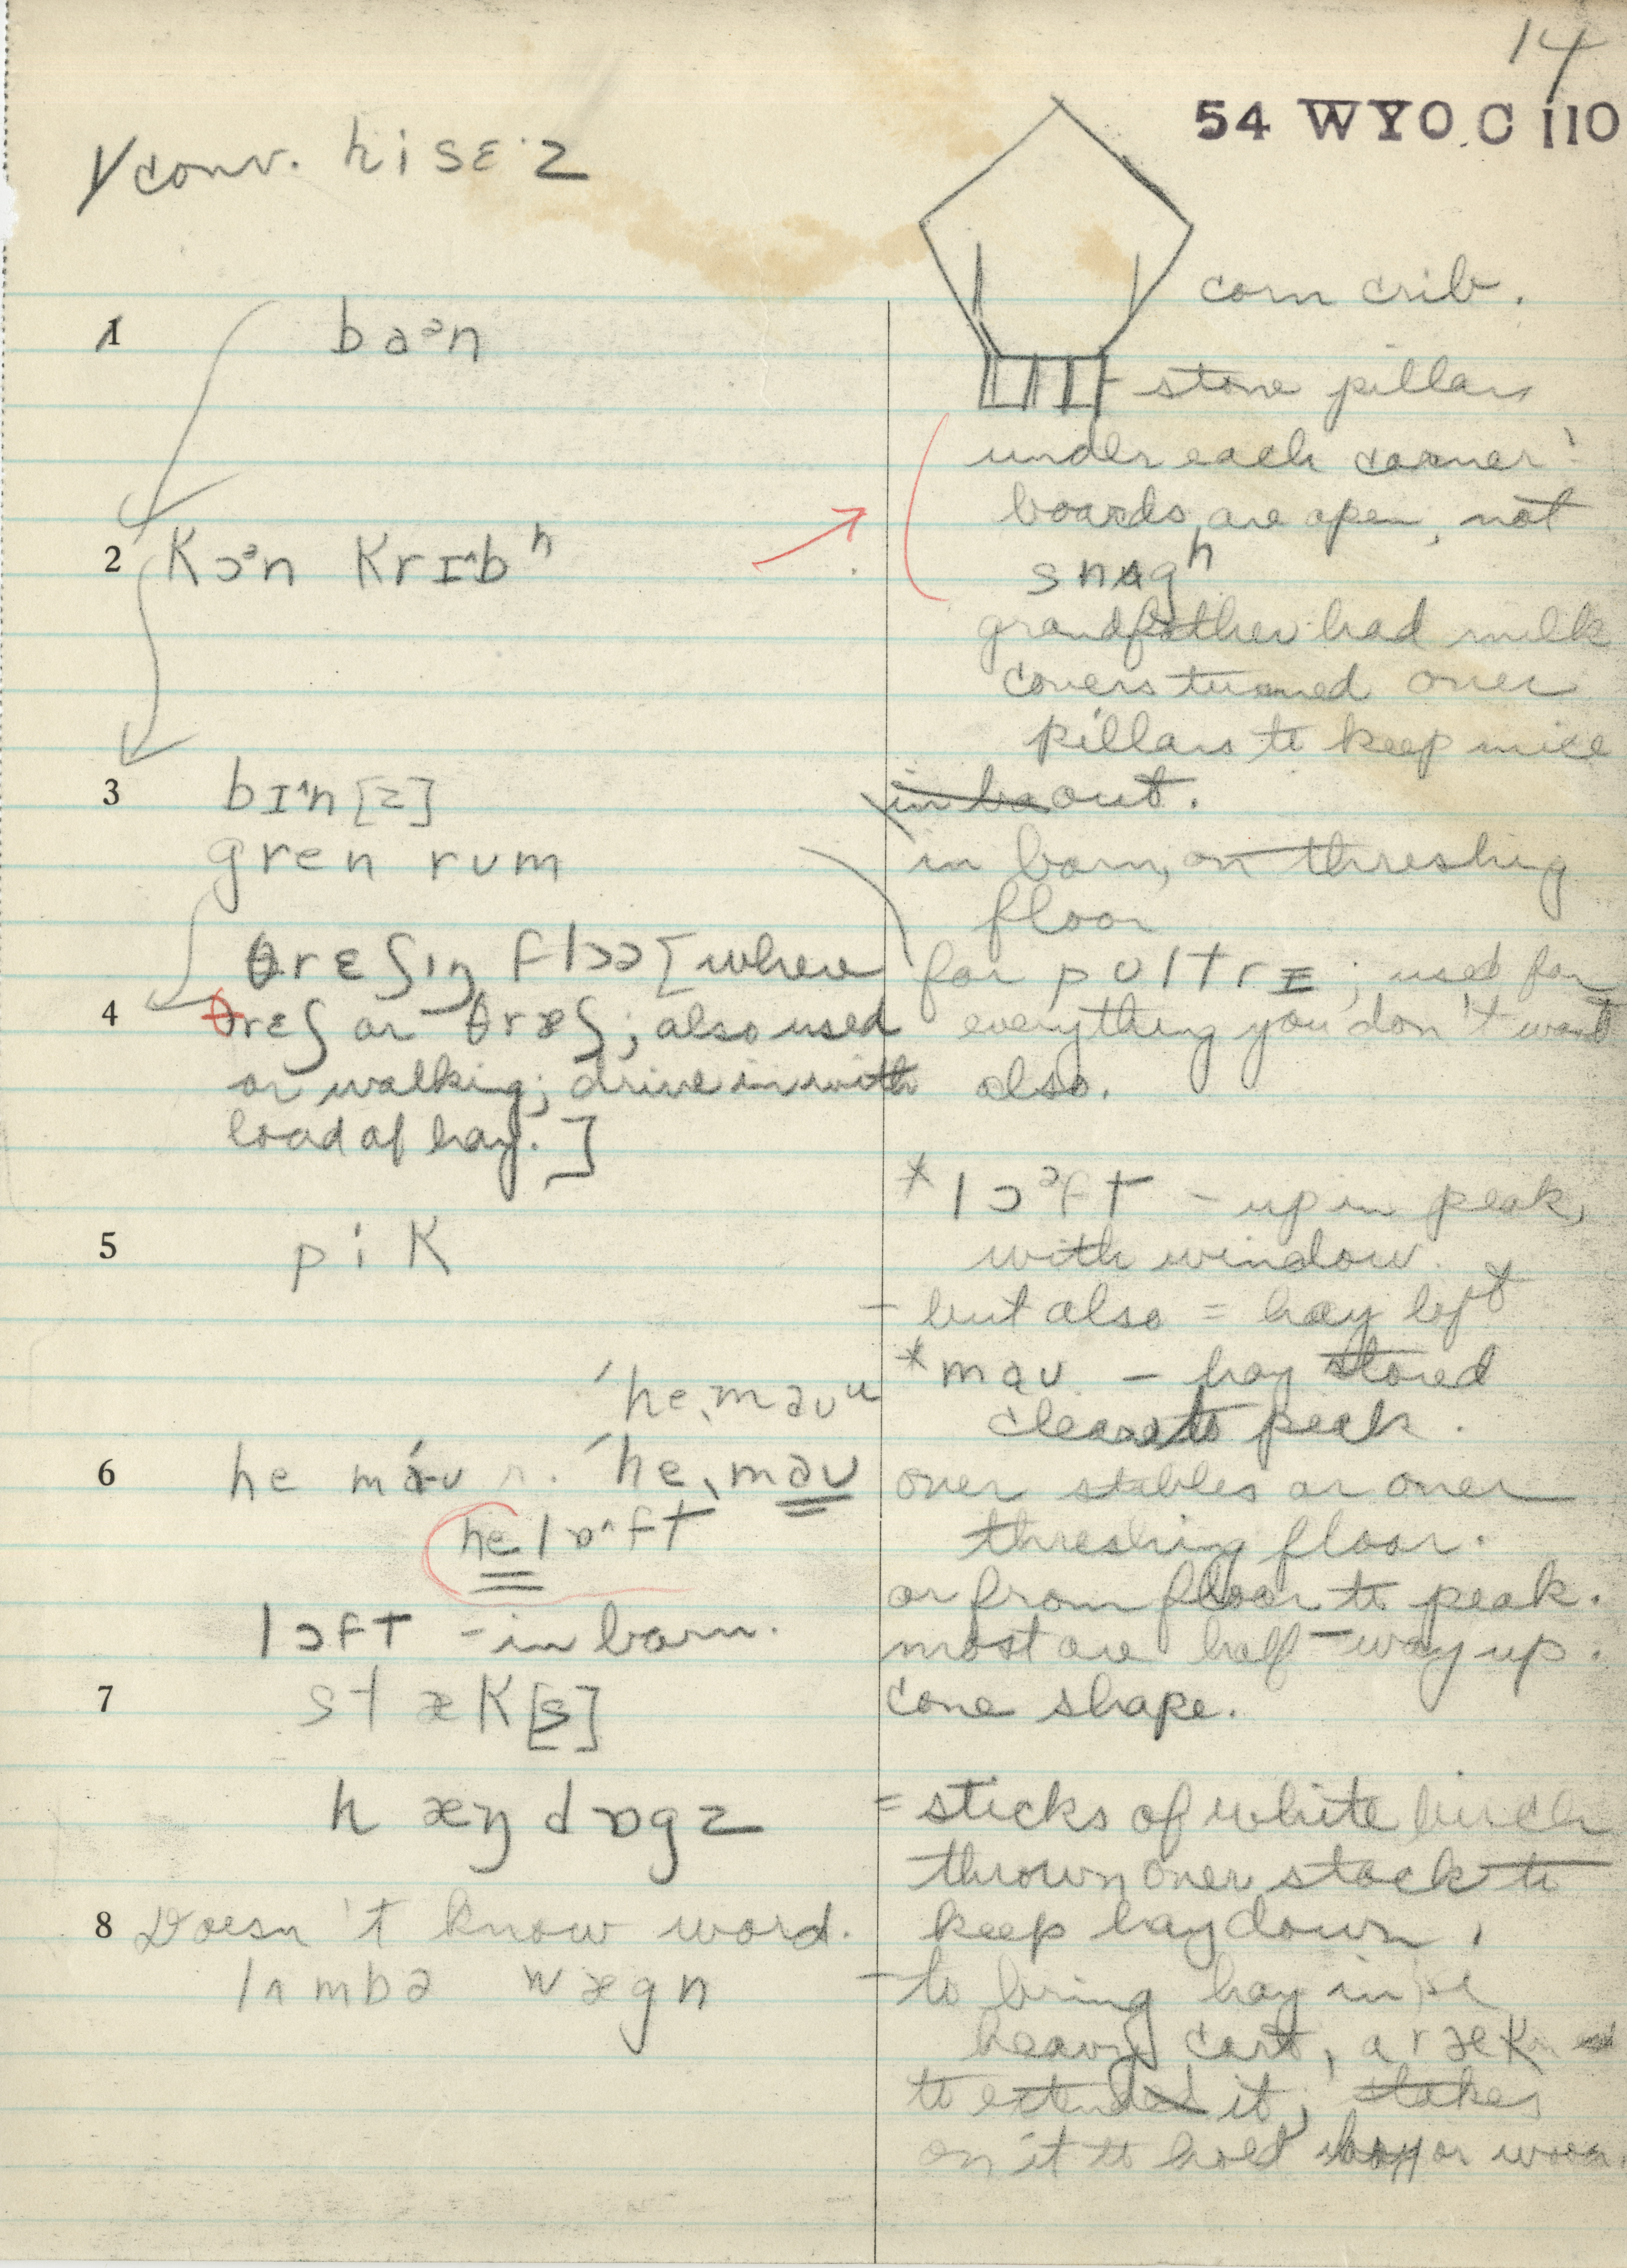 14
54 WYO C 110
√ conv. hi sɛ·z
corn crib.
1 baᵊn
- stone pillars
under each corner:
boards are open, not
snʌgʰ
2 kɔᵊn krɪ^bʰ
grandfather had milk
covers turned over
pillars to keep mice
out.
3 bɪ^n[z]
gren rum
in barn, on threshing
floor
θrɛʃɪŋ flɔə [where
4 θrɛʃ or θræʃ; also used
or walking; drive in with
load of hay.]
for poltrɪ; used for
everything you don't want
also.
5 pik
*lɔᵊft - up in peak,
with window.
- but also = hay loft
*maʊ - hay stored
clear to peak.
ˈheˌmaʊᵘ
6 he máʊ r. ˈheˌmaʊ
he lɒ^ft
lɔft - in barn.
over stables or over
threshing floor.
or from floor to peak.
most are half-way up.
7 stæk[s]
cone shape.
hæŋ dɒgz
= sticks of white birch
thrown over stack to
keep hay down.
8 Doesn't know word.
lʌmbə wægn
- to bring hay in
heavy cart, a ræk
to extend it; stakes
on it to hold hay or wood.